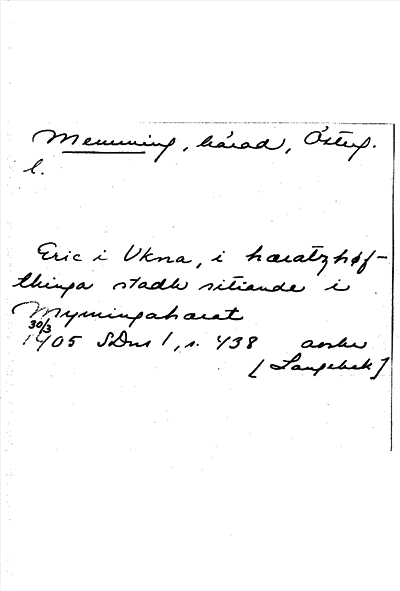 Memming, härad, Österg.
l.
Eric i Vkna, i hæratzhøf-
thinga stadh sitiande i
Mymingahærat
30/3
1405 SDns 1, s. 438 avskr
[Langebek]